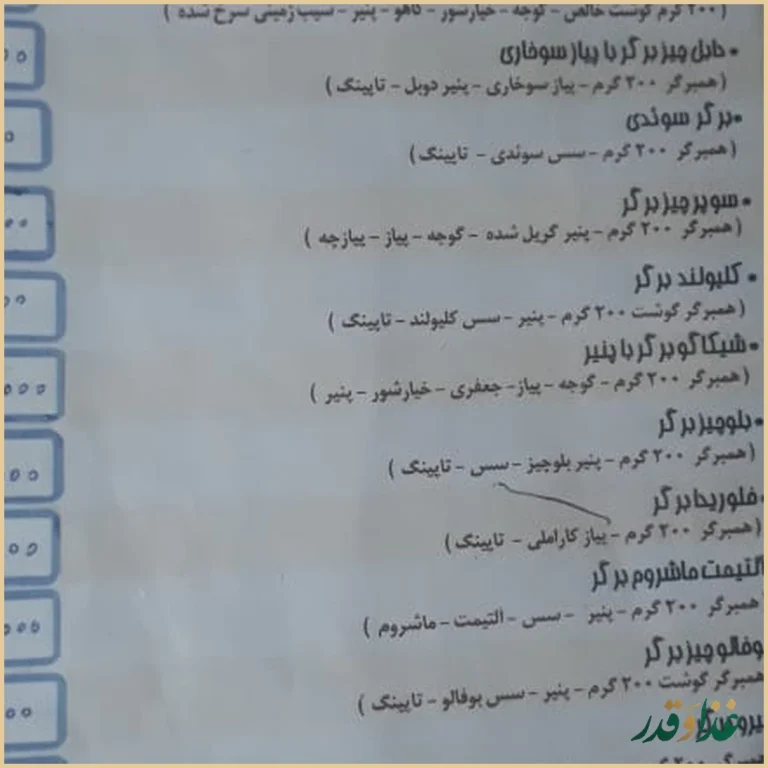 ( ۲۰۰ گرم گوشت خالص - گوجه - خیارشور - کاهو - پنیر - سیب زمینی سرخ شده )
• دابل چیز برگر با پیاز سوخاری
( همبرگر ۲۰۰ گرم - پیاز سوخاری - پنیر دوبل - تاپینگ )
• برگر سوئدی
( همبرگر ۲۰۰ گرم - سس سوئدی - تاپینگ )
• سوپر چیز برگر
( همبرگر ۲۰۰ گرم - پنیر گریل شده - گوجه - پیاز - پیازچه )
• کلیولند برگر
( همبرگر گوشت ۲۰۰ گرم - پنیر - سس کلیولند - تاپینگ )
• شیکاگو برگر با پنیر
( همبرگر ۲۰۰ گرم - گوجه - پیاز - جعفری - خیارشور - پنیر )
• بلوچیز برگر
( همبرگر ۲۰۰ گرم - پنیر بلوچیز - سس - تاپینگ )
• فلوریدا برگر
( همبرگر ۲۰۰ گرم - پیاز کاراملی - تاپینگ )
التیمت ماشروم برگر
همبرگر ۲۰۰ گرم - پنیر - سس - التیمت - ماشروم )
وفالو چیز برگر
همبرگر گوشت ۲۰۰ گرم - پنیر - سس بوفالو - تاپینگ )
غذا و قدر